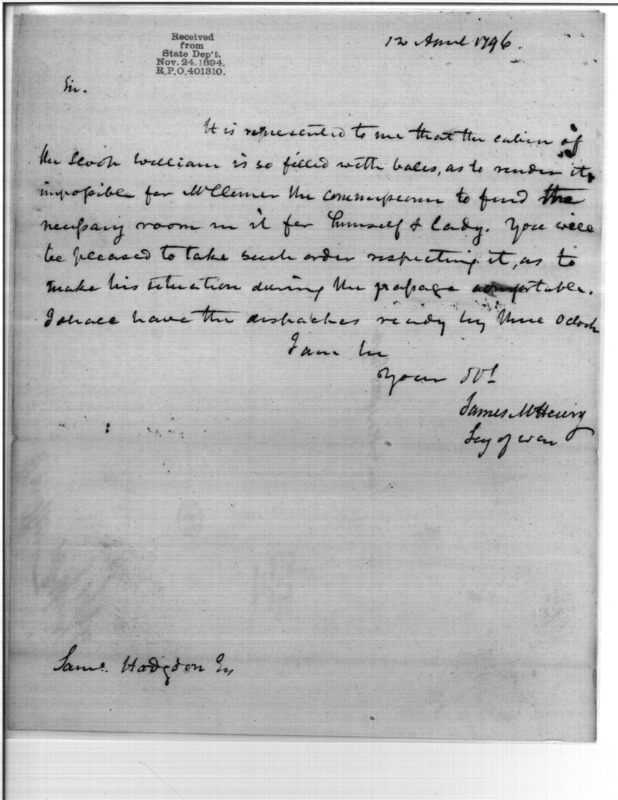 Received
from
State Dep't.
Nov. 24. 1894.
R.P.O. 401310.
12 April 1796.
Sir.
It is represented to me that the cabin of
the Sloop William is so filled with bales, as to render it
impossible for Mr Clymer the commissioner to find the
necessary room in it for himself & lady. You will
be pleased to take such order respecting it, as to
make his situation during the passage comfortable.
I shall have the dispatches ready by three OClock
I am Sir
Your St
James McHenry
Secy of war
Saml. Hodgdon Esq